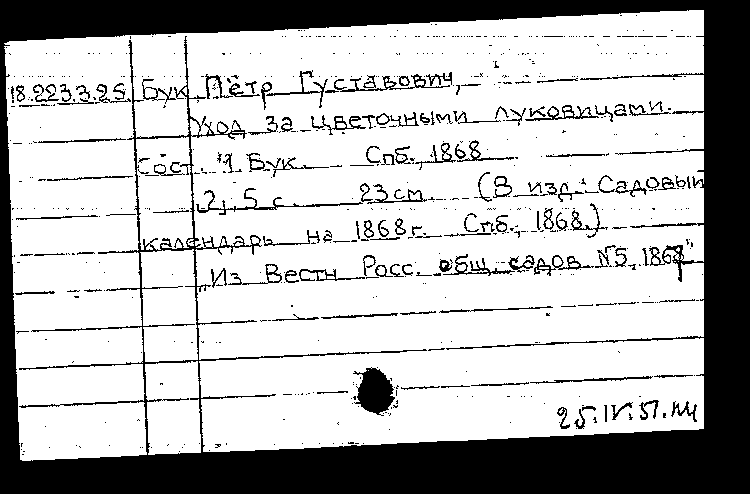 18.223.3.25. Бук, Пётр Густавович,
Уход за цветочными луковицами.
Сост. П. Бук. Спб., 1868
2, 5 с. 23 см. (В изд.: Садовый
календарь на 1868 г. Спб., 1868.)
„Из Вестн Росс. общ. садов №5, 1867"
25.IV.51.